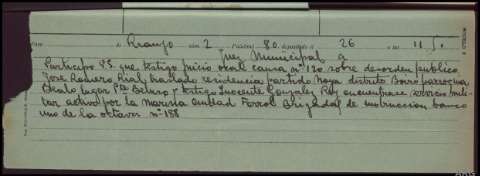 de Rianjo num 2 palabras 80 depósito 26 11
Juez Municipal a
Participo V.S. que testigo juicio oral causa nº 120 sobre desorden publico
José Romero Rial trasladó residencia partido Noya distrito Boiro parroquia
lugar y testigo Inocente Gonzalez Rey encuentrase servicio mili-
tar activo por la marina Ciudad Ferrol Brigada de instruccion banco
uno de la octava nº 188